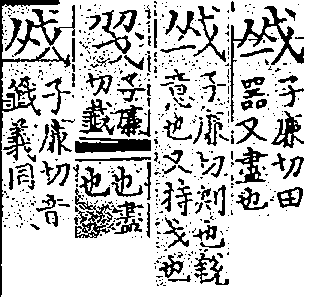 子廉切田
器又盡也
子廉切刺也銳
意也又持戈也
子廉
切韱
也盡
也
㦰
子廉切音
籤義同